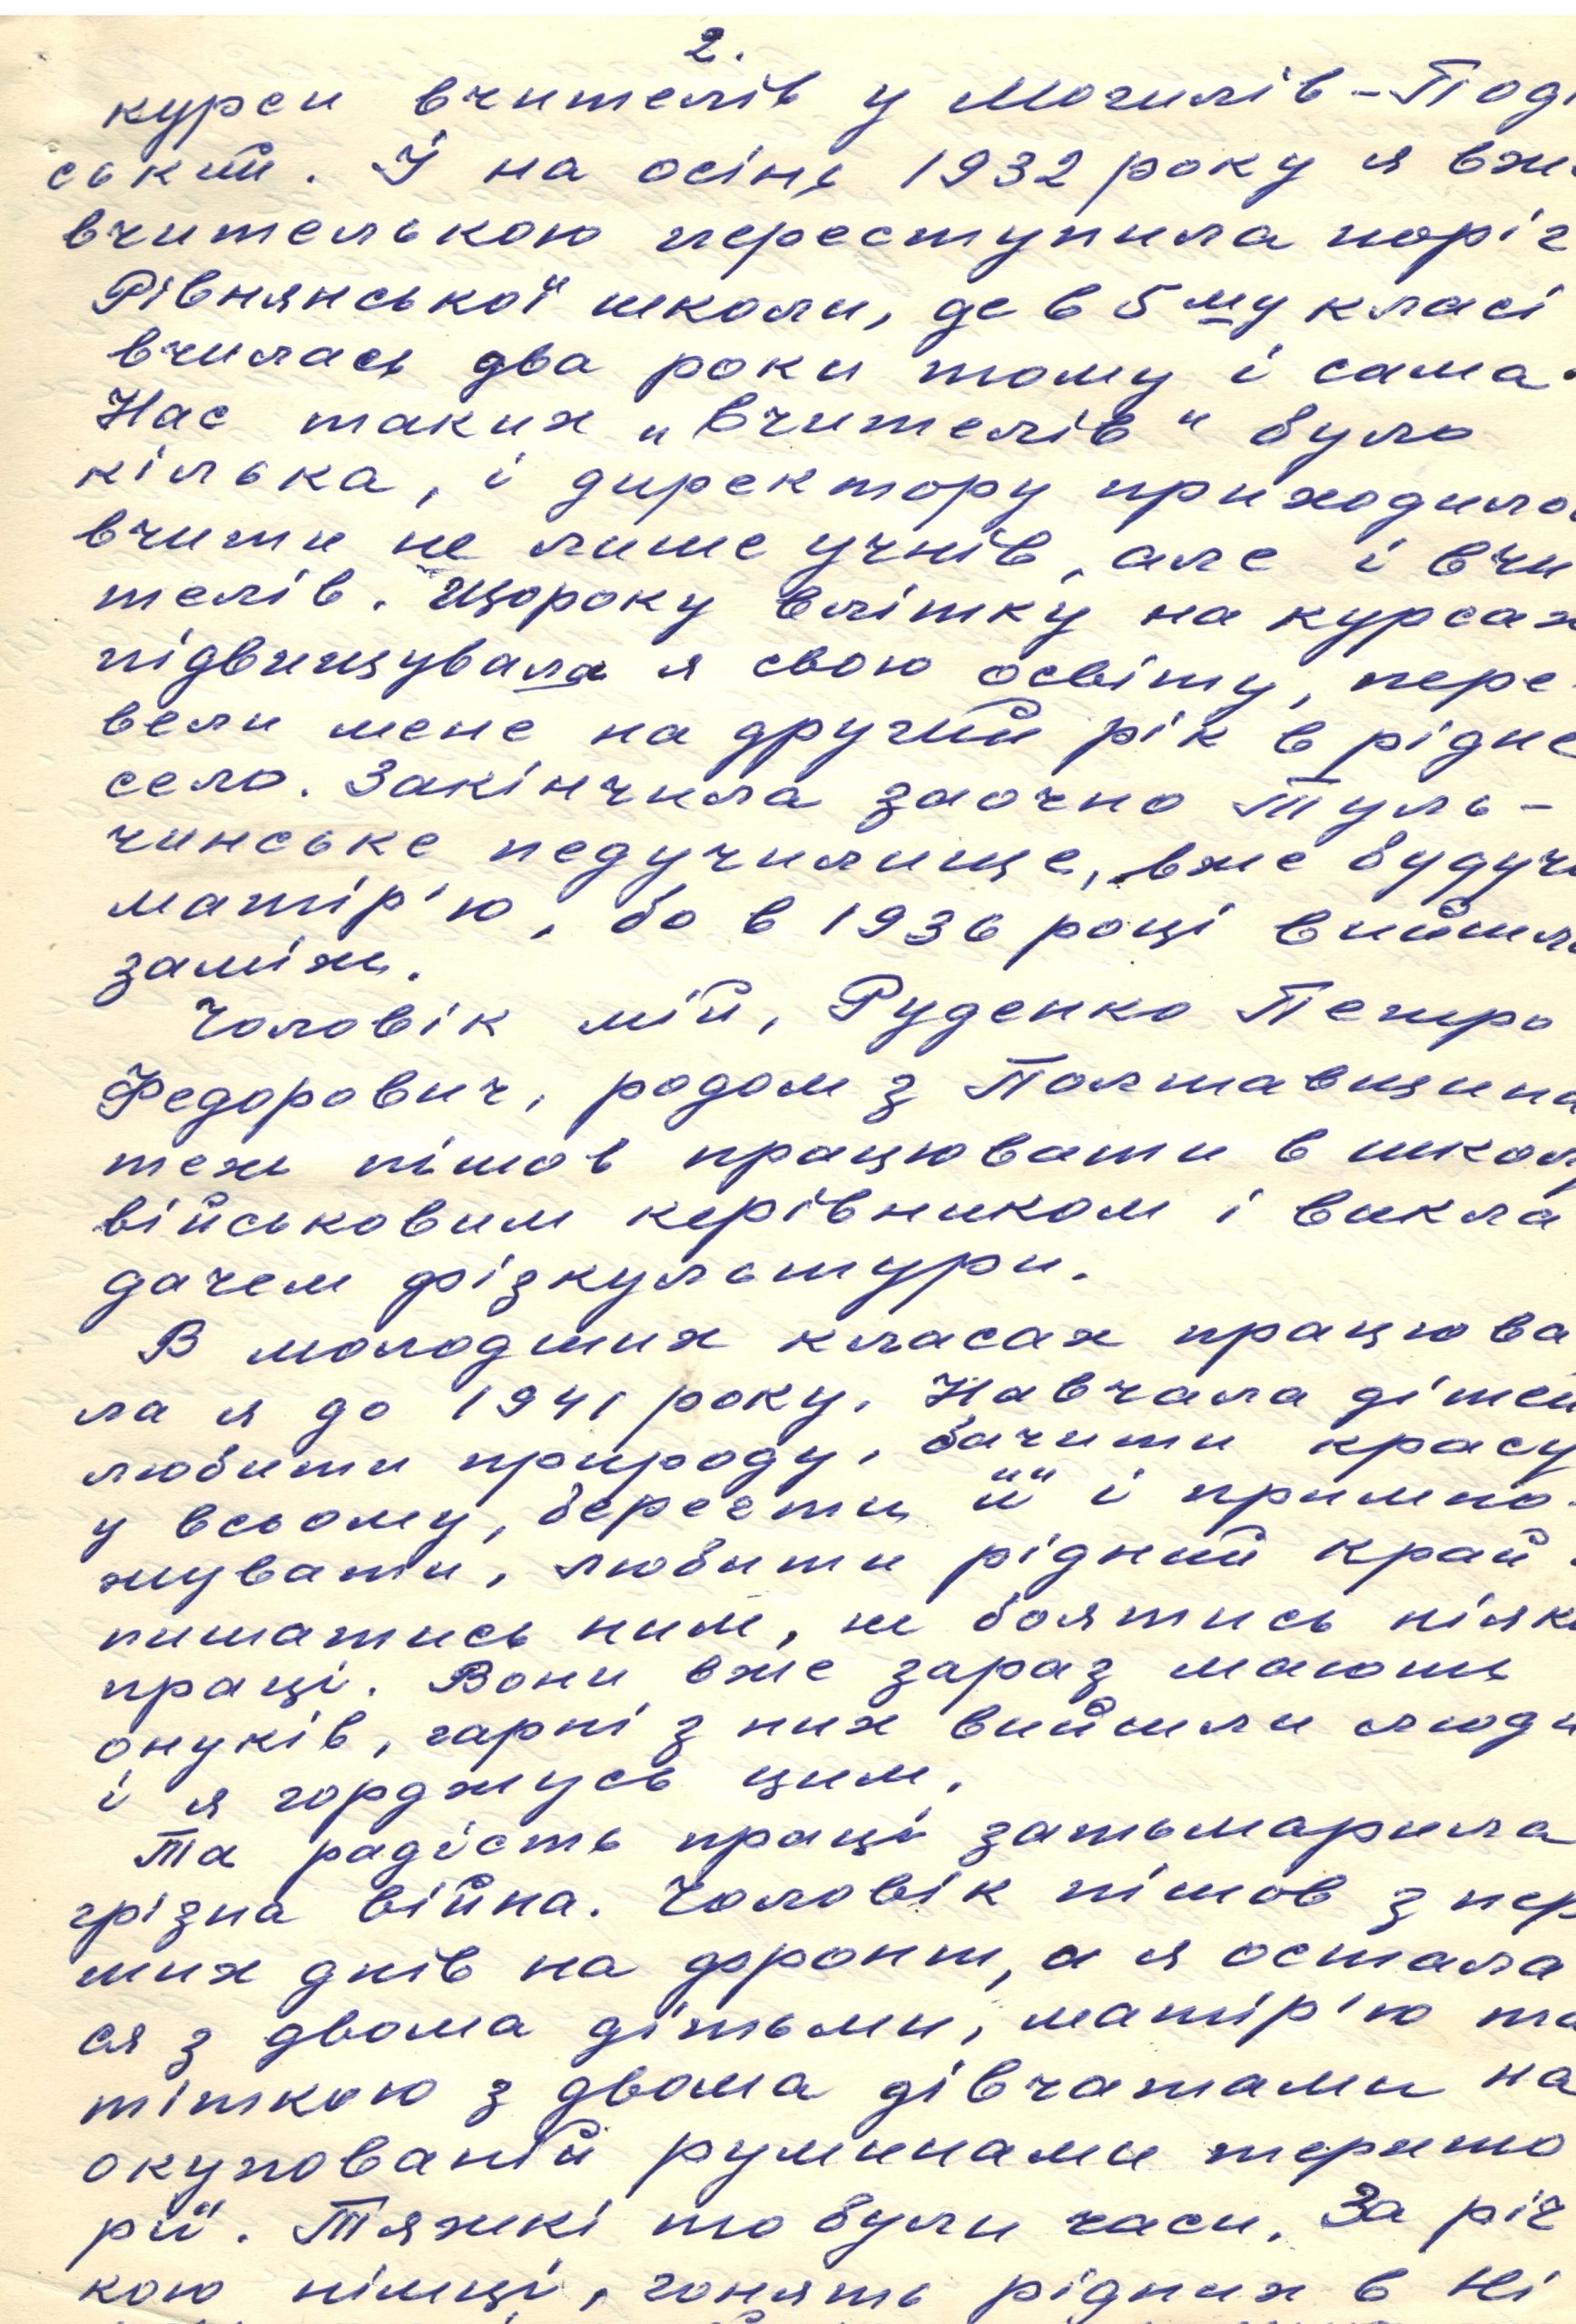 2.
курси вчителів у Могилів-Поді
ський. І на осінь 1932 року я вже
вчителькою переступила поріг
Рівнянської школи, де в 5му класі
вчилась два роки тому і сама.
Нас таких „вчителів" було
кілька, і директору приходилос
вчити не лише учнів, але і вчи
телів. Щороку влітку на курсах
підвищувала я свою освіту, пере-
вели мене на другий рік в рідне
село. Закінчила заочно Туль-
чинське педучилище, вже будучи
матір'ю, бо в 1936 році вийшла
заміж.
Чоловік мій, Руденко Петро
Федорович, родом з Полтавщини
теж пішов працювати в школу
військовим керівником і викла
дачем фізкультури.
В молодших класах працюва
ла я до 1941 року. Навчала дітей
любити природу, бачити красу
у всьому, берегти її і примно-
жувати, любити рідний край.
пишатись ним, не боятись ніяко
праці. Вони вже зараз мають
онуків, гарні з них вийшли люди
і я горджусь цим.
Та радість праці затьмарила
грізна війна. Чоловік пішов з пер
ших днів на фронт, а я остала
ся з двома дітьми, матір'ю та
тіткою з двома дівчатами на
окупованій руминами терито
рії. Тяжкі то були часи. За річ
кою німці, гонять рідних в Ні